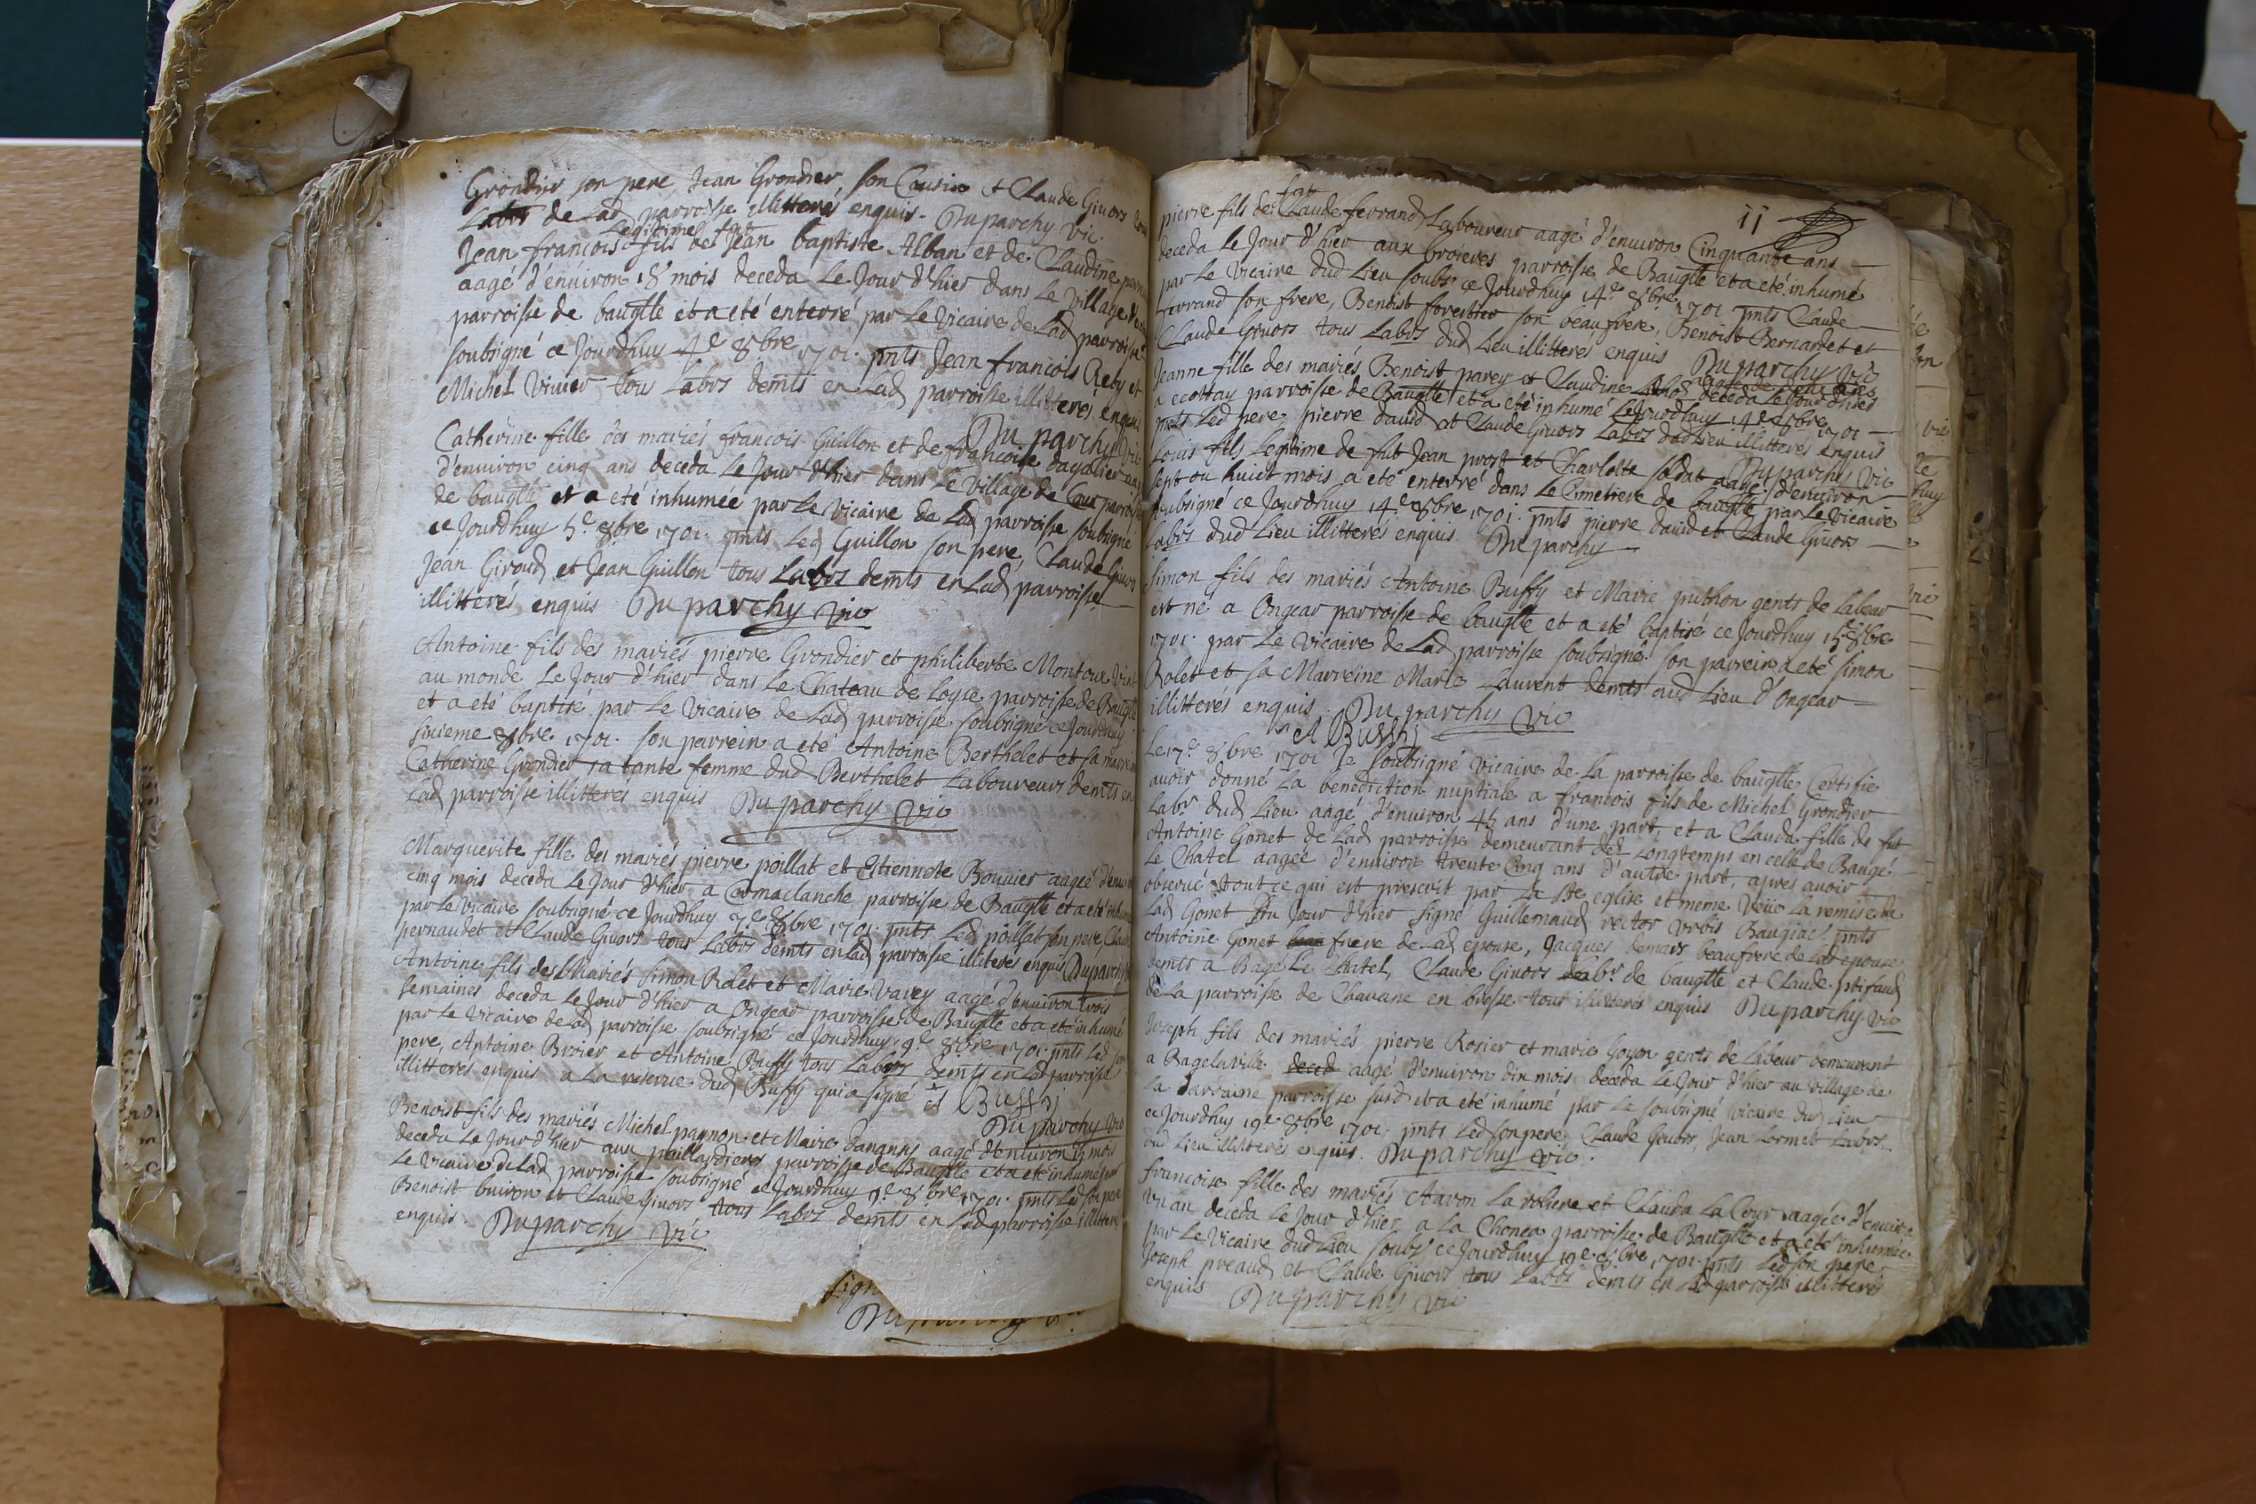 Grondier son pere, Jean Grondier, son Cousin et Claude Givors
Labrs de Lad parroisse illitterés enquis. Duparchy vic.
Legitime fut
Jean francois fils de Jean baptiste Alban et de Claudine
aagé d'environ 18 mois deceda Le Jour d'hier dans Le Village de
parroisse de baugtte et a eté enterré par Le Vicaire de Lad parroisse
soubsigné ce Jourdhuy 4e 8bre 1701. pnts Jean francois Reby et
Michel Vivier tous Labrs demts en Lad parroisse illitterés enquis
Duparchy vic
Catherine fille des mariés francois Guillon et de francoise
d'environ cinq ans deceda Le Jour d'hier dans Le Village de Cour parroisse
de baugtte et a eté inhumée par Le Vicaire de Lad parroisse soubsigné
ce Jourdhuy 5e 8bre 1701. pnts Led Guillon son pere, Claude Givors
Jean Giroud et Jean Guillon tous Labrs demts en Lad parroisse
illitterés enquis Duparchy vic
Antoine fils des mariés pierre Grondier et philiberte Montoux Vint
au monde Le Jour d'hier dans Le Chateau de Logie parroisse de Baugtte
et a eté baptisé par Le Vicaire de Lad parroisse soubsigné ce Jourdhuy
sixieme 8bre 1701. son parrein a eté Antoine Berthelet et sa marreine
Catherine Grondier sa tante femme dud Berthelet Laboureurs demts en
Lad parroisse illitterés enquis Duparchy vic
Marguerite fille des mariés pierre poillat et Etiennete Bouvier aagée d'environ
cinq mois deceda Le Jour d'hier a Cormaclanche parroisse de Baugtte et a eté inhumée
par Le Vicaire soubsigné ce Jourdhuy 7e 8bre 1701. pnts Led poillat son pere, Claude
pernaudet et Claude Givors tous Labrs demts en Lad parroisse illiterés enquis Duparchy
Antoine fils des Mariés Simon Rolet et Marie Varey aagé d'environ trois
semaines deceda Le Jour d'hier a Ongear parroisse de Baugtte et a eté inhumé
par Le Vicaire de Lad parroisse soubsigné ce Jourdhuy 9e 8bre 1701. pnts Led son
pere, Antoine Broier et Antoine Buffy tous Labrs demts en Lad parroisse
illitterés enquis a La reserve dud Buffy qui a signé A Buffy
Duparchy vic
Benoist fils des mariés Michel pagnon et Marie aagé d'environ mois
deceda Le Jour d'hier aux paillardieres parroisse de Baugtte et a eté inhumé par
Le Vicaire de Lad parroisse soubsigné ce Jourdhuy 9e 8bre 1701. pnts Led son pere
Benoist buiron et Claude Givors tous Labrs demts en Lad parroisse illitterés
enquis Duparchy vic
sign
11
pierre fils de fut Claude ferrand Laboureur aagé d'environ Cinquante ans
deceda Le Jour d'hier aux broieres parroisse de Baugtte et a eté inhumé
par Le Vicaire dud Lieu soubsé ce Jourdhuy 14e 8bre 1701 pnts Claude
ferrand son frere, Benoist son beaufrere, Benoist Bernardet et
Claude Givors tous Labrs dud Lieu illitterés enquis Duparchy vic
Jeanne fille des mariés Benoist parey et Claudine deceda Le Jour d'hier
a ecottay parroisse de Baugtte et a eté inhumé Le Jourdhuy 14e 8bre 1701
pnts Led pere pierre david et Claude Givors Labrs dud Lieu illitterés enquis
Duparchy vic
Louis fils Legitime de fut Jean prost et Charlotte soldat aagé d'environ
sept ou huict mois a eté enterré dans Le Cimetiere de baugtte par Le Vicaire
soubsigné ce Jourdhuy 14e 8bre 1701. pnts pierre david et Claude Givors
Labrs dud Lieu illitterés enquis Duparchy
Simon fils des mariés Antoine Buffy et Marie puthon gents de labeur
est né a Ongear parroisse de baugtte et a eté baptisé ce Jourdhuy 15e 8bre
1701. par Le Vicaire de Lad parroisse soubsigné. son parrein a eté Simon
Rolet et sa Marreine Marie Laurent demts aud Lieu d'Ongear
illitterés enquis. Duparchy vic
A Buffy
Le 17e 8bre 1701 Je soubsigné Vicaire de La parroisse de baugtte Certifie
avoir donné La benediction nuptiale a francois fils de Michel Grondier
Labr dud Lieu aagé d'environ 45 ans d'une part, et a Clauda fille de fut
Antoine Gonet de Lad parroisse demeurant dès Longtemps en celle de Baugé
Le Chatel aagée d'environ trente Cinq ans d'autre part, apres avoir
observé tout ce qui est prescrit par La Ste eglise et meme Veüe La remise de
Lad Gonet du Jour d'hier signé Guillemaud rector Urbis Baugiaci pnts
Antoine Gonet frere de Lad epouse, Jacques demars beaufrere de Lad epouse
demts a Bagé Le Chatel, Claude Givors Labr de baugtte et Claude
de La parroisse de Chavane en bresse tous illitterés enquis Duparchy vic
Joseph fils des mariés pierre Rosier et marie Goyon gents de labeur demeurant
a Bagelaville deced aagé d'environ dix mois deceda Le Jour d'hier au village de
La Sarraine parroisse susd et a eté inhumé par Le soubsigné Vicaire dud Lieu
ce Jourdhuy 19e 8bre 1701. pnts Led son pere, Claude Givors, Jean Lormet Labrs
dud Lieu illitterés enquis. Duparchy vic.
francoise fille des mariés Aaron La voliere et Clauda La Cour aagée d'environ
un an deceda Le Jour d'hier a La Chonea parroisse de Baugtte et a eté inhumée
par Le Vicaire dud Lieu soubsé ce Jourdhuy 19e 8bre 1701. pnts Led son pere
Joseph preaud et Claude Givors tous Labrs demts en Lad parroisse illitterés
enquis Duparchy vic